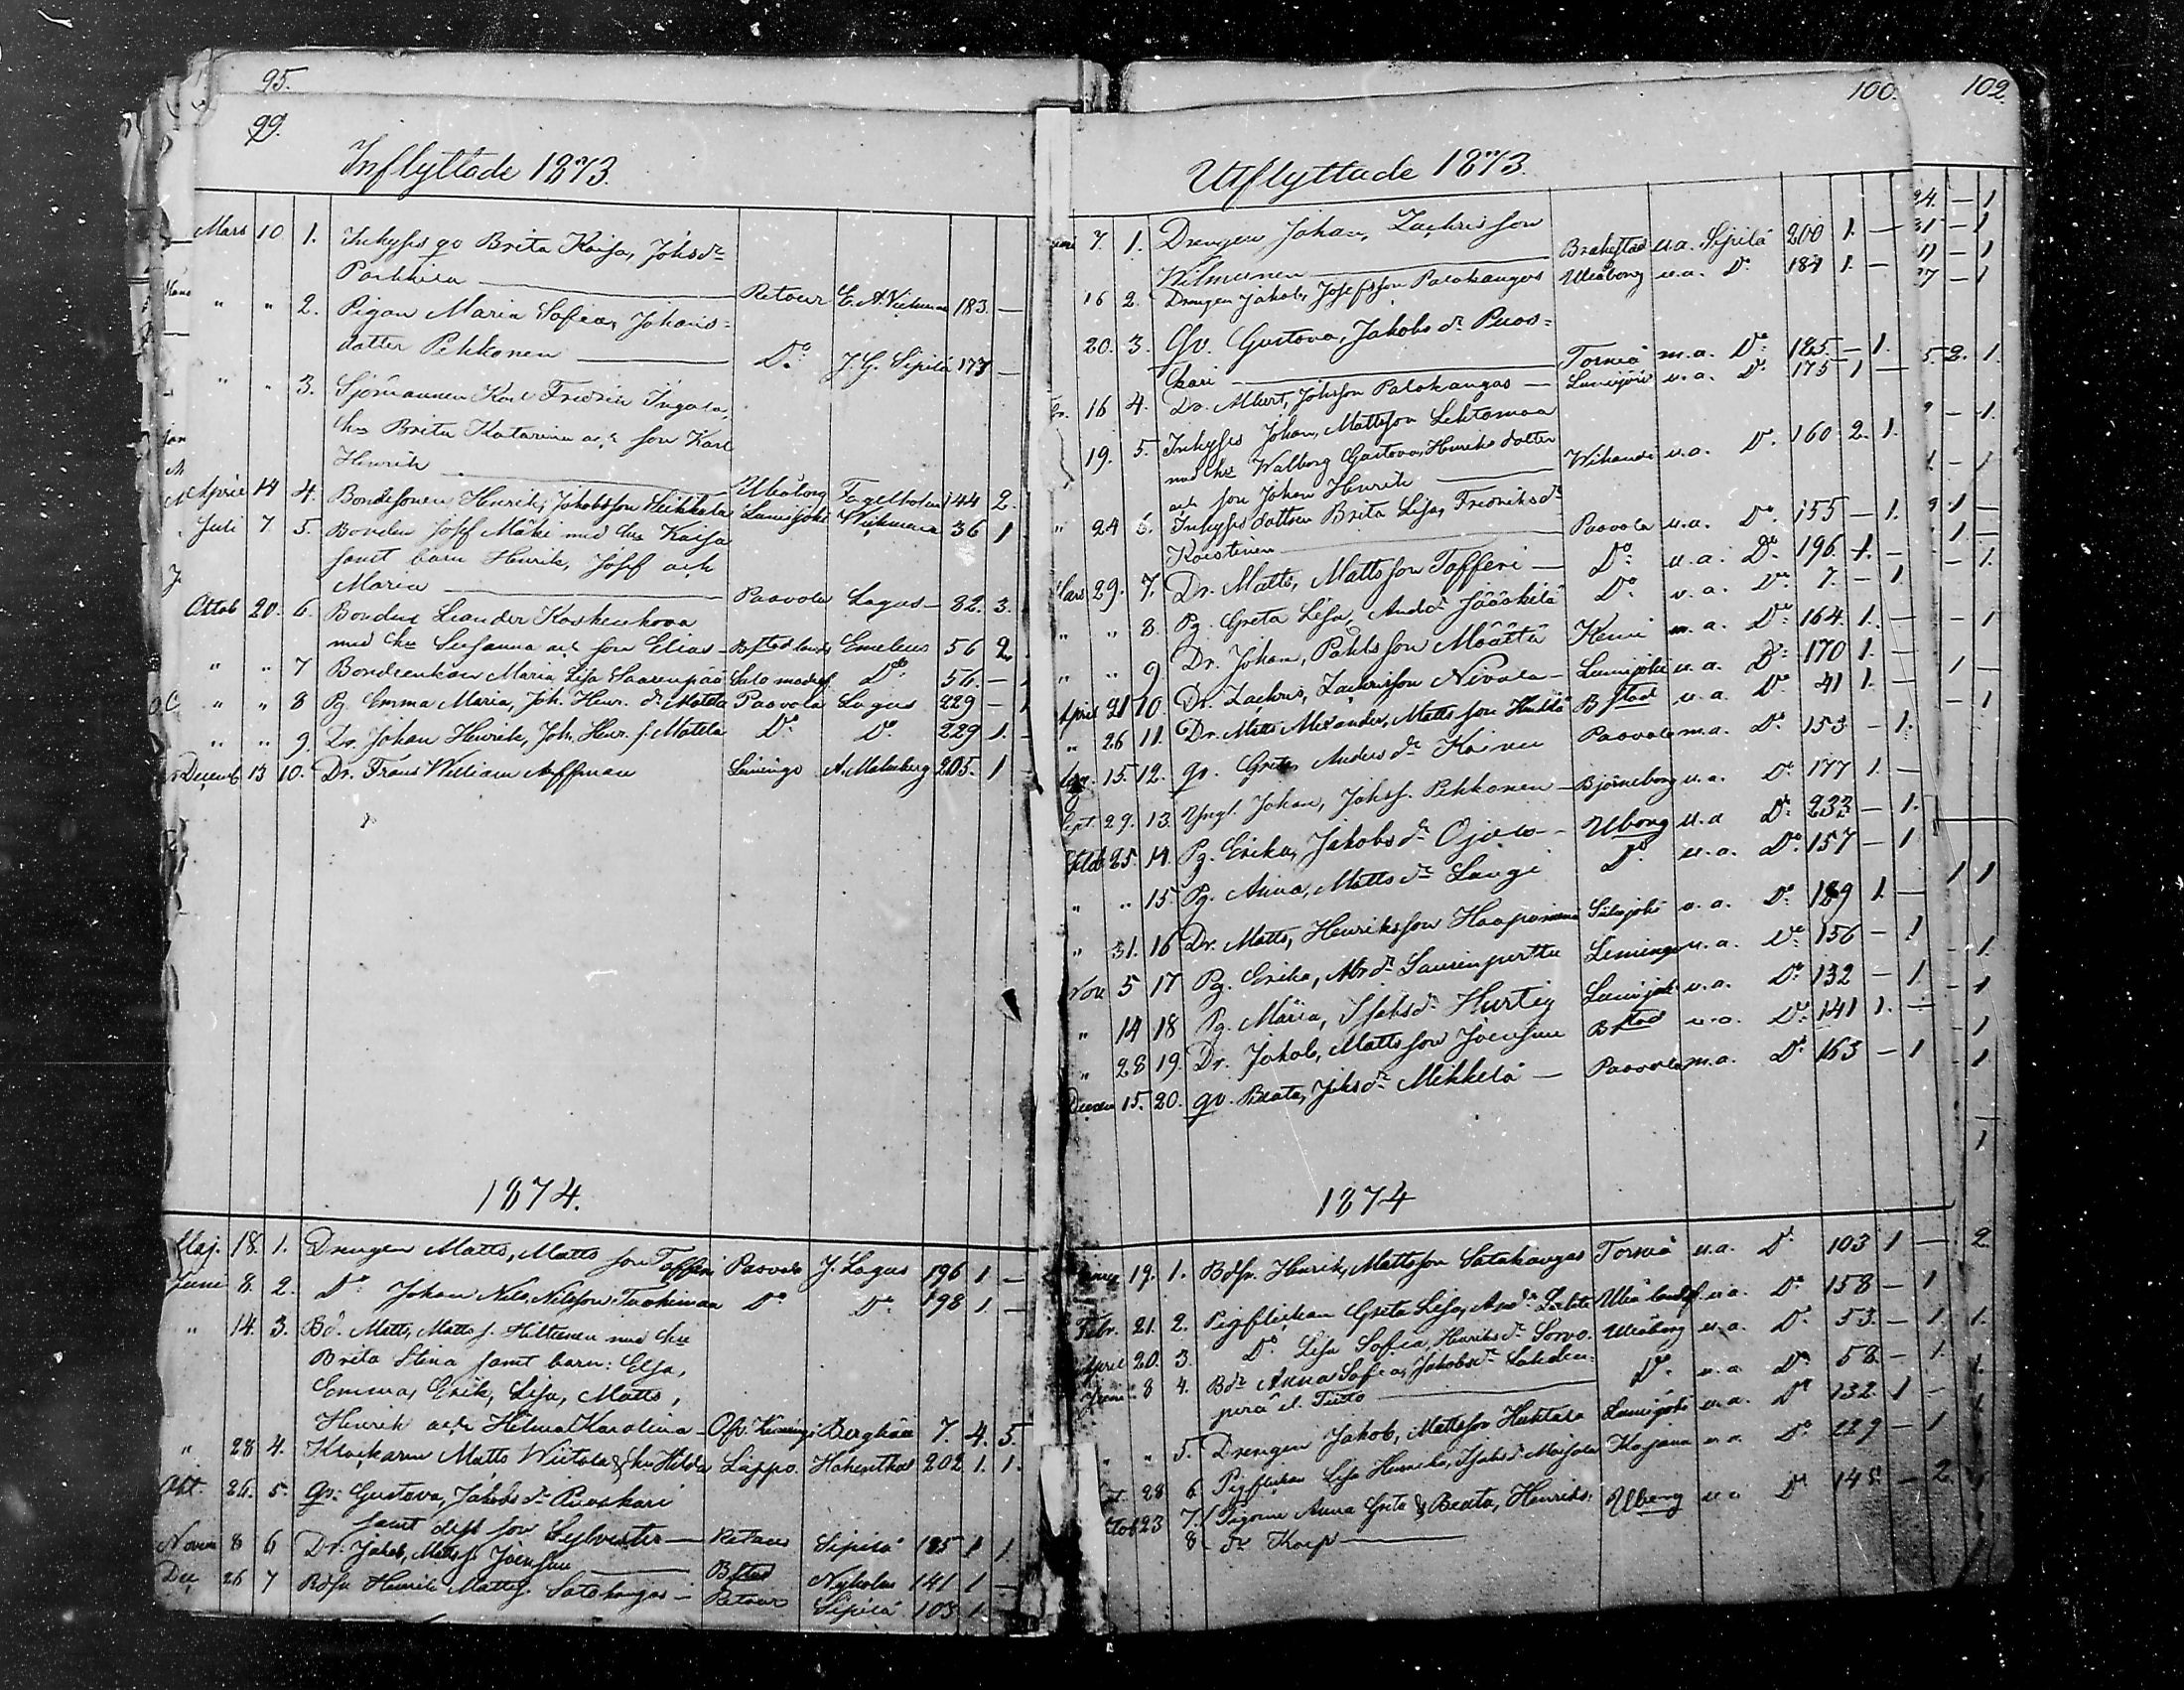 95.
99.
Inflyttade 1873.
Mars 10. 1. Inhyses qv Brita Kaisa, Johsdr
Parkkila — Retour E. A. Vickman 183. —
" " 2. Pigan Maria Sofia, Johans=
dotter Pekkonen — Do J. G. Sipilä 173 —
" " 3. Sjömannen Karl Fredrik
hu Brita Katarina och son Karl
Henrik — Uleåborg Fagerholm 144 2.
April 14 4. Bondesonen Henrik, Jakobsson Heikkala Lumijoki Wikman 36 1
Juli 7. 5. Bonden Josef Mäki med hu Kaisa
samt barn Henrik, Josef och
Maria — Paavola Lagus — 32. 3.
Oktob 20. 6. Bonden Leander Koskenkova
med hu Susanna och son Elias — Bstad lands Emeleus 56 2.
" " 7 Bondeenkan Maria Lisa Saarenpää Salo modf. Do 56. —
" " 8 Pg. Emma Maria, Joh. Henr. dr Matela Paavola Lagus 229 — 1
" " 9. Dr. Johan Henrik, Joh. Henr. s. Matela Do Do 229 1. —
Decemb 13 10. Dr. Frans William Aoffman Limingo A. Malmberg 205. 1 —
1874.
Maj. 18. 1. Drengen Matts, Matts son Tofferi Paavola J. Lagus 196 1. —
Juni 8. 2. Do Johan Nils, Nilsson Tuohimaa Do Do 198 1. —
" 14. 3. Bd. Matts, Matts s. Hiltunen med hu
Brita Stina samt barn: Elsa,
Emma, Erik, Lisa, Matts,
Henrik och Hilma Karolina — Öfv. Kiminge Berghäll 7. 4. 5.
" 28 4. Klockaren Matts Wiitala & hu Hilda Lappo. Hohenthal 202 1. 1.
Okt. 26. 5. Qv: Gustava, Jakobs dr Puoskari
samt dess son Sylvester — Retour Sipilä 185 1 1
Novem 8 6 Dr. Jakob, Matts s. Joensuu — Bstad Nyholm 141 1 —
Dec 26 7 Bdsn Henrik Mattss. Satokangas — Retour Sipilä 103 1. —
100.
102.
Utflyttade 1873.
7. 1. Drengen Johan, Zachrisson
Wilmunen — Brahestad u.a. Sipilä 200 1. —
16 2. Drengen Jakob, Josefsson Palokangas Uleåborg u.a. Do 184 1. —
20. 3. Qv. Gustava, Jakobs dr Puos=
kari — Torneå m.a. Do 185. — 1.
16 4. Dr. Albert, Johsson Palokangas — Lumijoki u.a. Do 175 1 —
19. 5. Inhyses Johan, Mattsson Lehtomaa
med hu Walborg Gustava, Henriks dotter
och son Johan Henrik — Wihanti u.a. Do 160 2. 1.
" 24 6. Inhyses dottern Brita Lisa, Fredriksdr
Karstinen — Paavola u.a. Do 155 — 1.
Mars 29. 7. Dr. Matts, Mattsson Tofferi — Do u.a. Do 196. 1. —
" " 8. Pg. Greta Lisa, Andsdr Jääskelä Do u.a. Do 7. — 1.
" " 9 Dr. Johan, Pahlsson Määttä Kemi m.a. Do 164. 1. —
April 21 10. Dr. Zachris, Zachrisson Nivala — Lumijoki u.a. Do 170 1. —
" 26 11. Dr. Matts Alexander, Mattsson Bstad u.a. Do 41 1. —
15. 12. qv. Greta Anders dr Kainu Paavola m.a. Do 153 — 1.
Sept. 29. 13. Yngl. Johan, Johss. Pekkonen — Björneborg u.a. Do 177 1. —
25. 14. Pg. Erika, Jakobs dr Ojala — Uborg u.a Do 232 — 1.
" " 15. Pg. Anna, Matts dr Langi Do u.a. Do 157 — 1
" 31. 16 Dr. Matts, Henriksson Haapaniemi Siikajoki u.a. Do 189 1. —
Nov 5 17 Pg. Erika, Abr dr Saurenpertti Limingo u.a. Do 156 — 1
" 14 18 Pg. Maria, Isaksdr Hurtig Lumijoki u.a. Do 132 — 1.
" 28 19. Dr. Jakob, Mattsson Joensuu Bstad u.a. Do 141 1. —
Decem 15. 20. qv. Beata, Johsdr Mikkelä — Paavola m.a. Do 163 — 1
1874
19. 1. Bdsn. Henrik, Mattsson Satokangas Torneå u.a. Do 103 1 —
Febr. 21. 2. Pigflickan Greta Lisa, Andsdr Uleå landsf. u.a. Do 158 — 1
April 20. 3. Do Lisa Sofia, Henriksdr Sorvo. Uleåborg u.a. Do 53. — 1.
Juni 8 4. Bdr Anna Sofia, Jakobsdr Lahden=
perä el. Tuito — Do u.a. Do 58 — 1.
" " 5. Drengen Jakob, Mattsson Huhtala Lumijoki u.a. Do 132 1 —
28 6. Pigflickan Lisa Henrika, Isaksdr Kajana u.a. Do 229 — 1
Oktob 23 7. Pigorna Anna Greta & Beata, Henriks: Uborg u.a Do 145 — 2.
8 dr Karp —